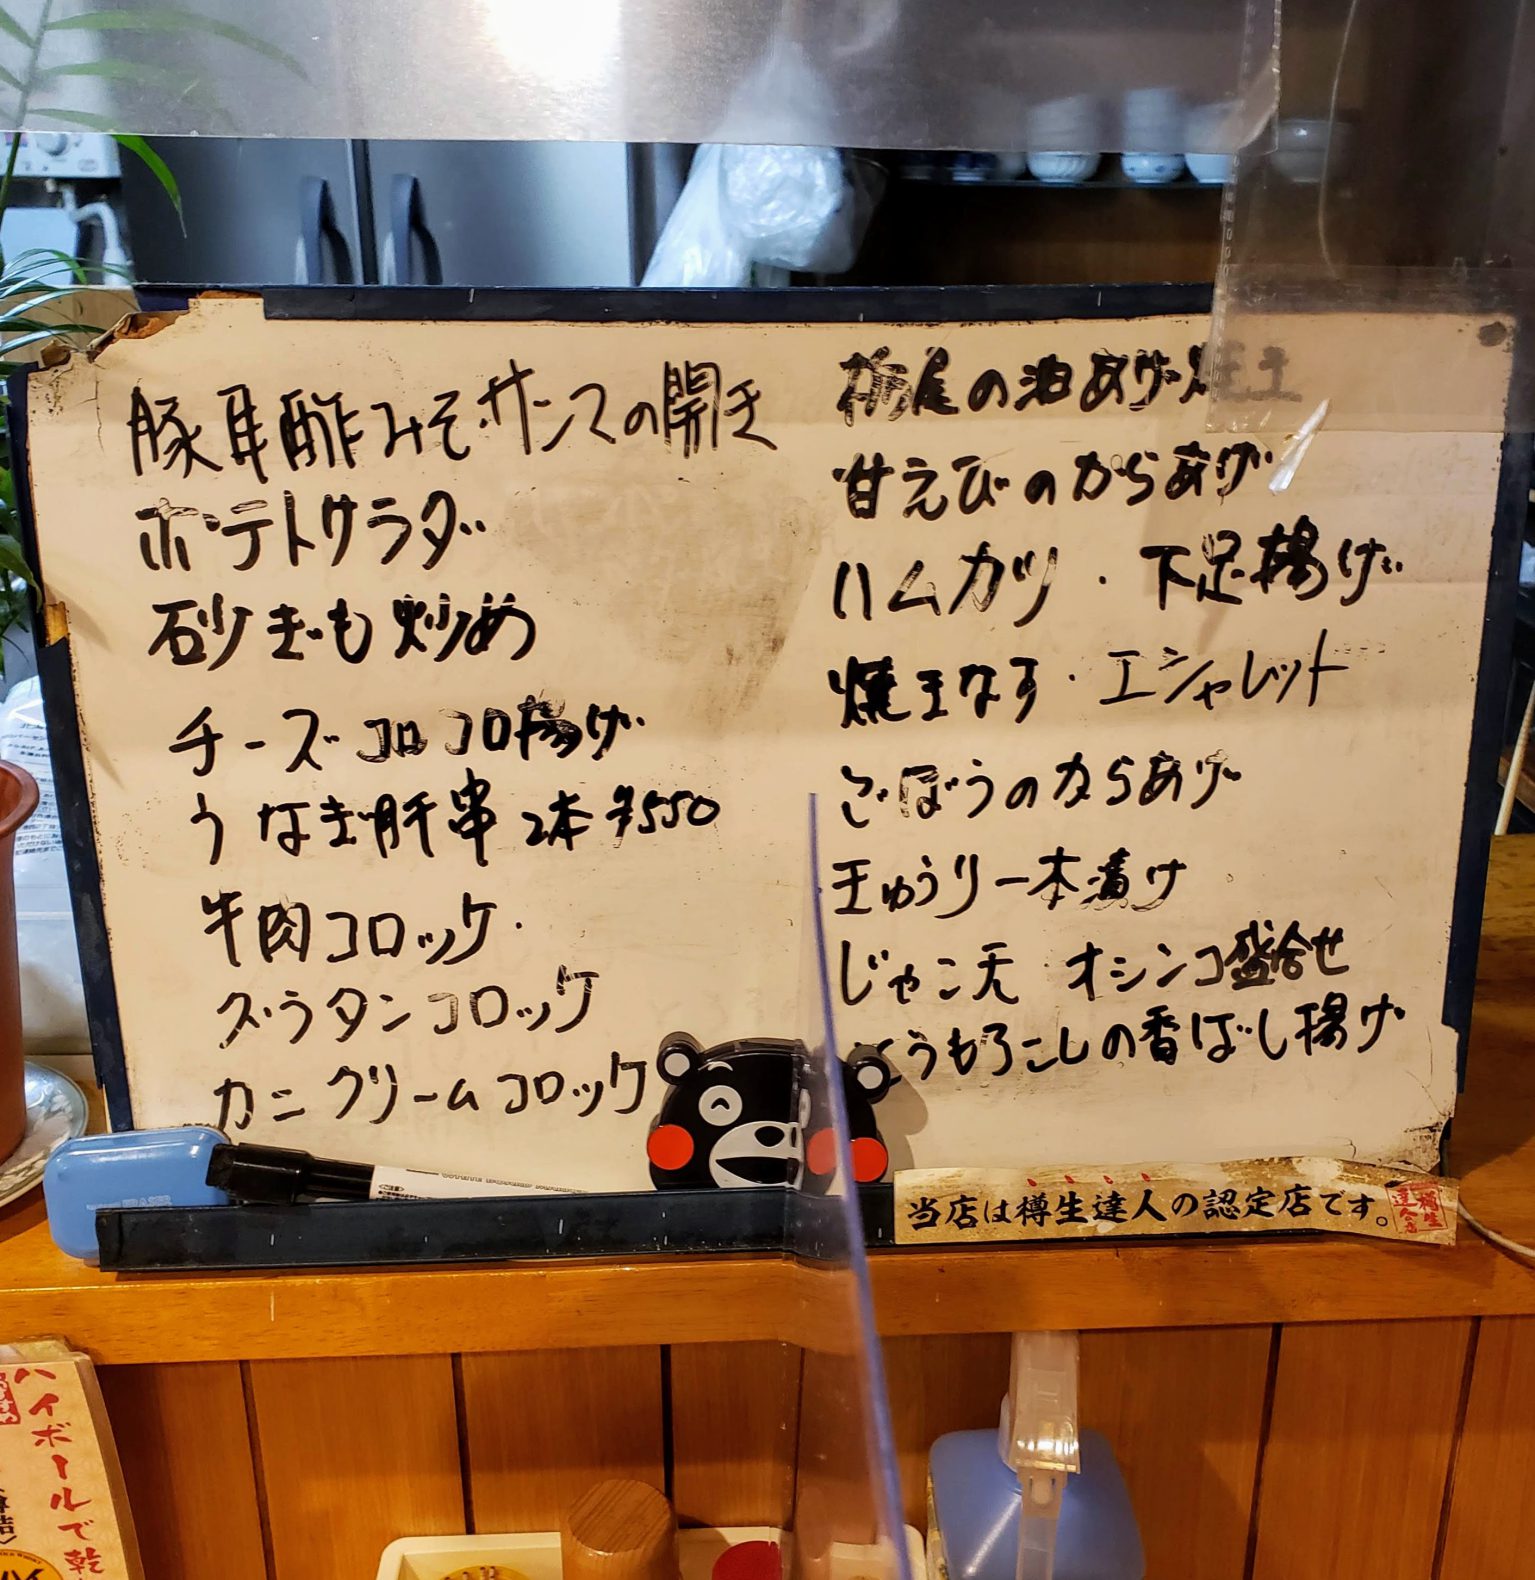 豚耳酢みそ・サンマの開き
ポテトサラダ
砂ぎも炒め
チーズコロコロ揚げ
うなぎ肝串 2本 ¥550
牛肉コロッケ・
ズータンコロッケ
カニクリームコロッケ
栃尾の油あげ焼き
甘えびのからあげ
ハムカツ・下足揚げ
焼きなす・エシャレット
ごぼうのからあげ
きゅうり一本漬け
じゃこ天 オシンコ盛合せ
とうもろこしの香ばし揚げ
当店は樽生達人の認定店です。
樽生達人
ハイボールで乾